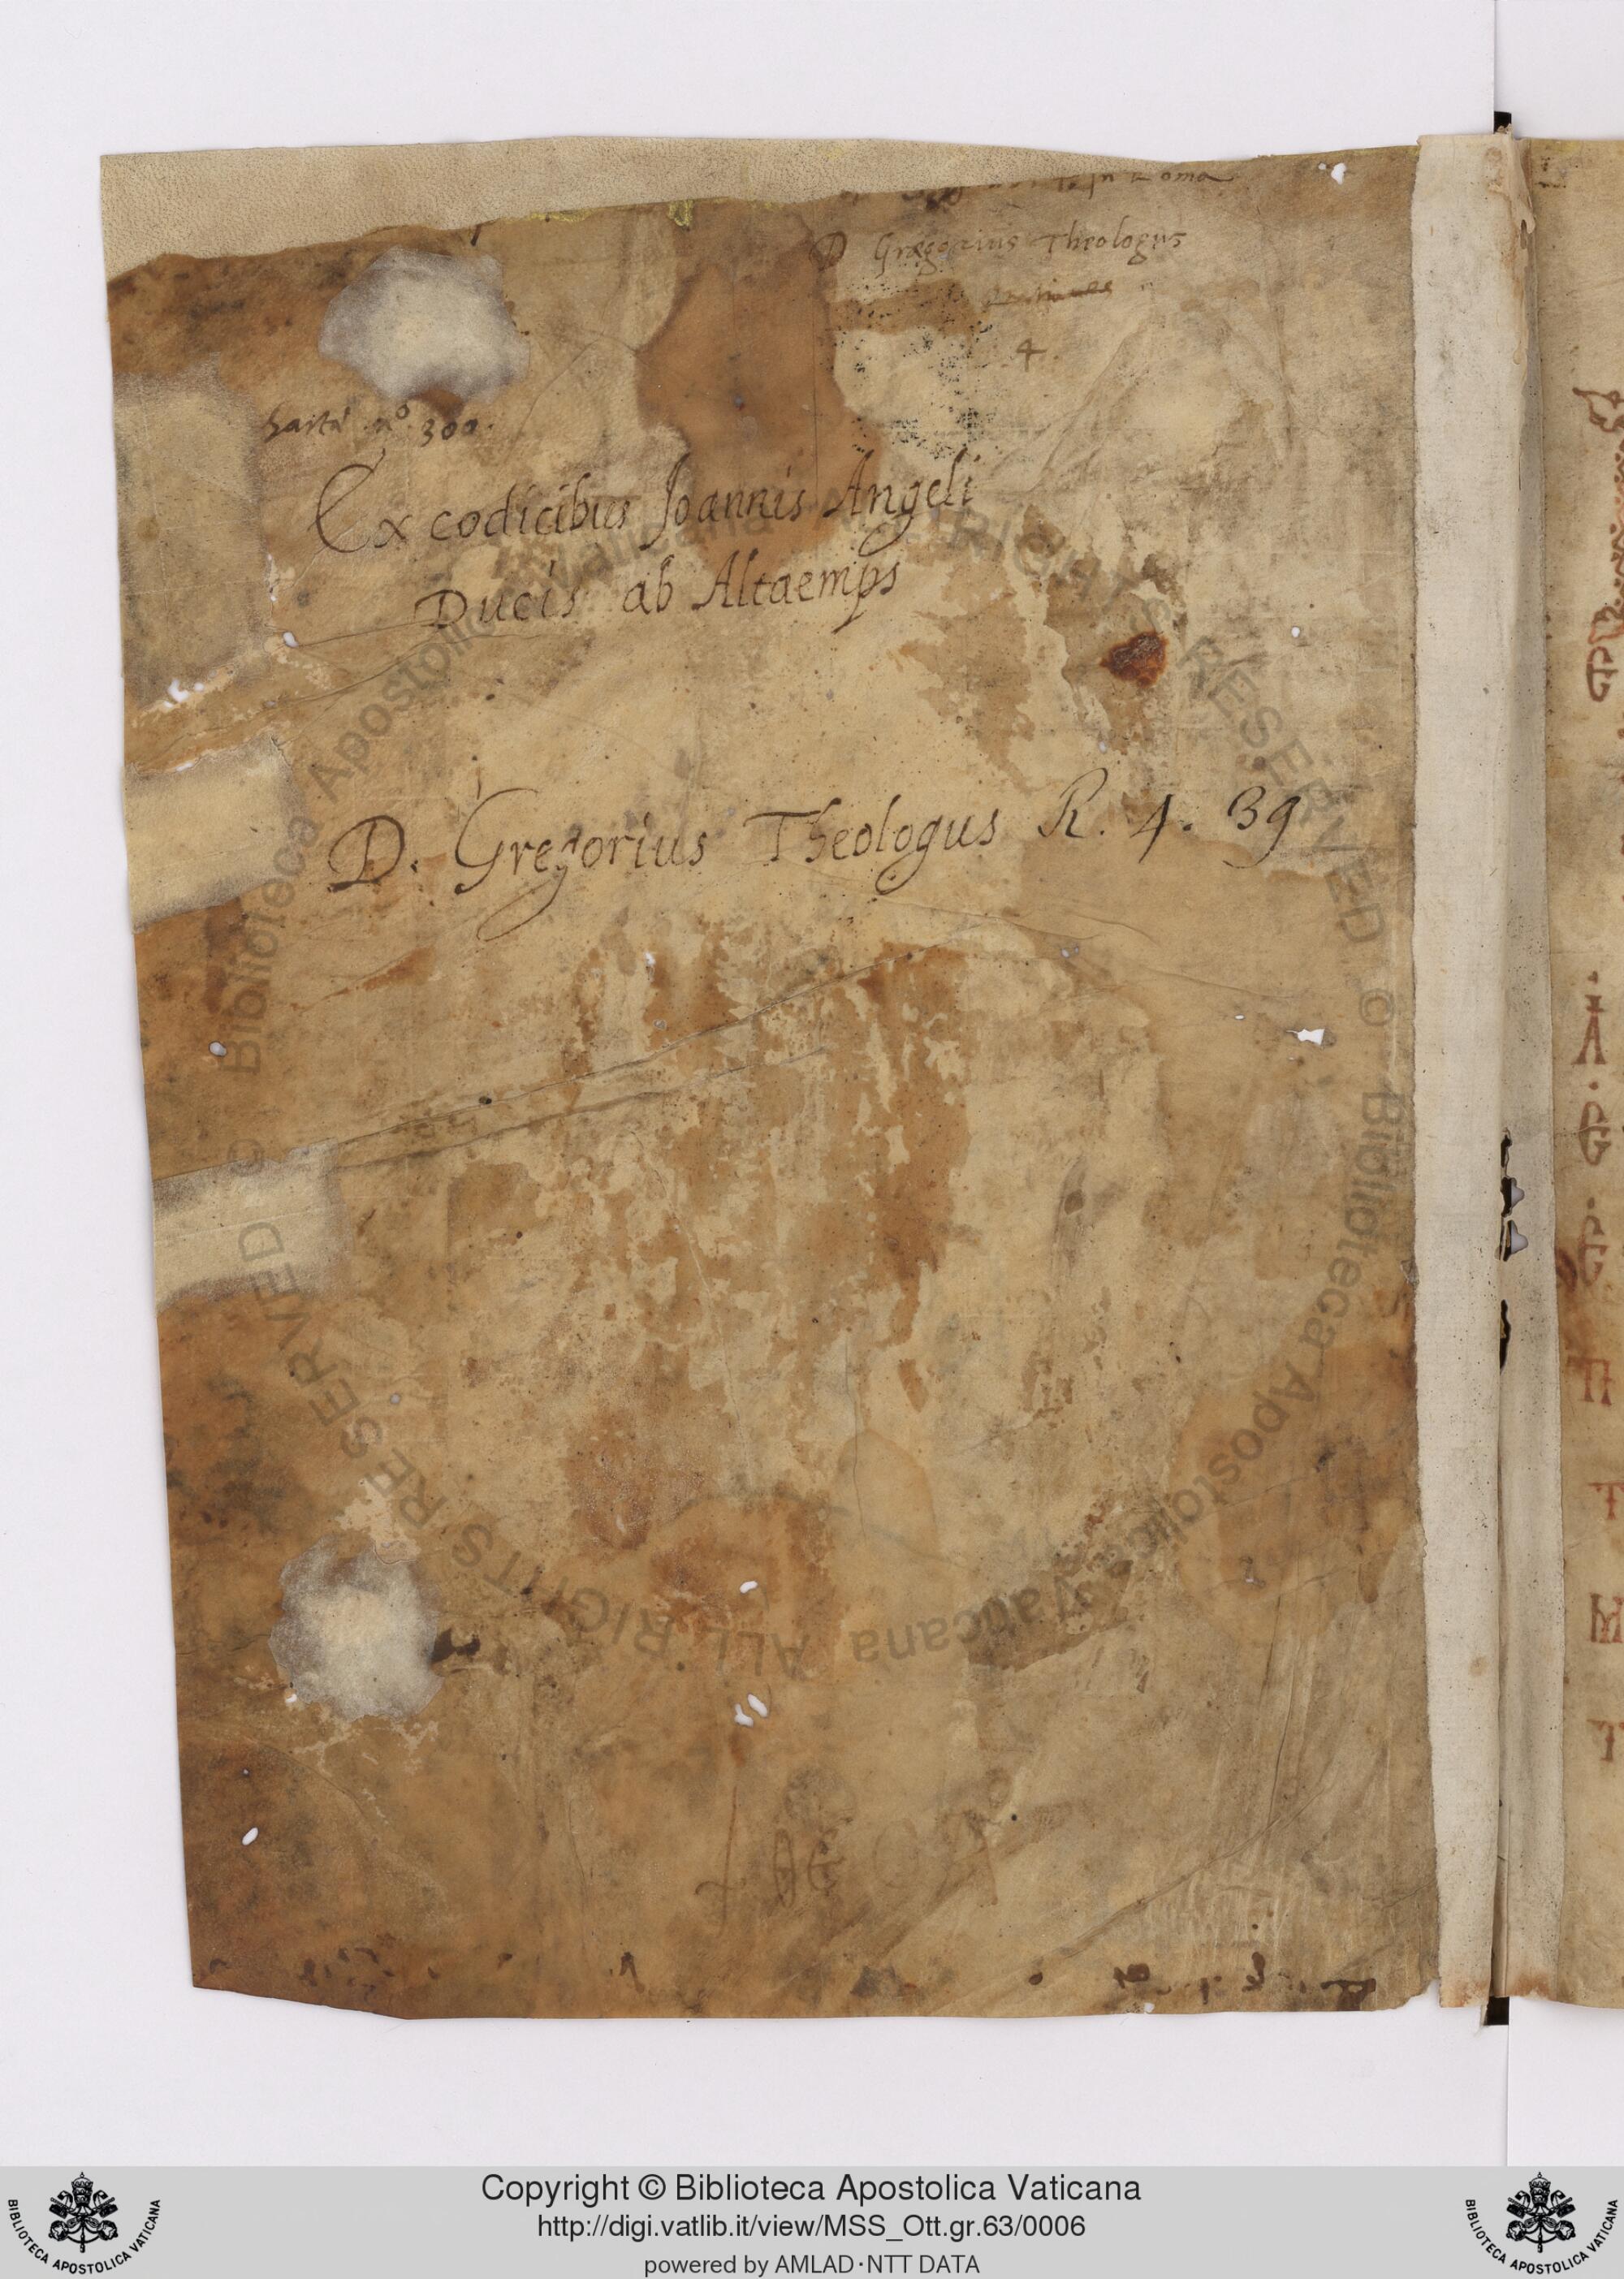 Roma
D Gregorius Theologus
4.
carta nº. 300.
Ex codicibus Joannis Angeli
Ducis ab Altaemps
D. Gregorius Theologus R. 4. 39
Α
Π
Τ
Μ
Τ
© Biblioteca Apostolica Vaticana ALL RIGHTS RESERVED © Biblioteca Apostolica Vaticana ALL RIGHTS RESERVED
Copyright © Biblioteca Apostolica Vaticana
http://digi.vatlib.it/view/MSS_Ott.gr.63/0006
powered by AMLAD·NTT DATA
BIBLIOTECA APOSTOLICA VATICANA
BIBLIOTECA APOSTOLICA VATICANA